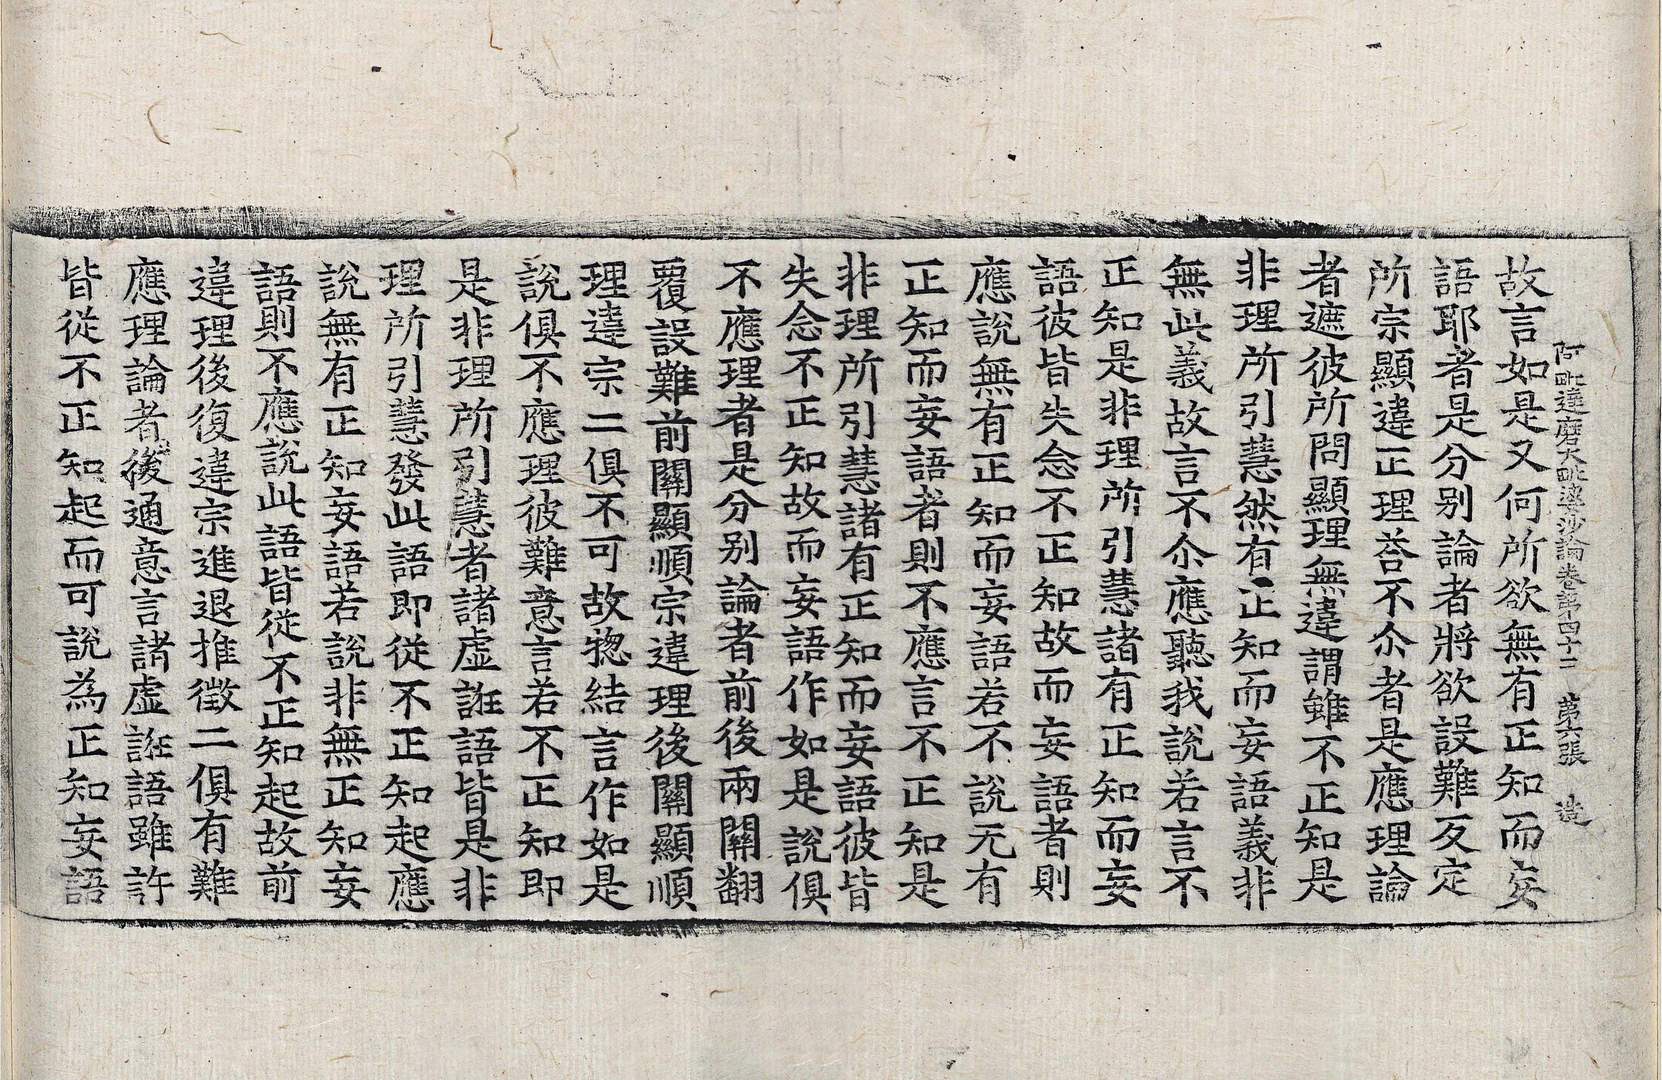 阿毗達磨大毗婆沙論卷第四十二　第六張　造
故言如是又何所欲無有正知而妄
語耶者是分别論者將欲設難反定
所宗顯違正理荅不尒者是應理論
者遮彼所問顯理無違謂雖不正知是
非理所引慧然有正知而妄語義非
無此義故言不尒應聽我說若言不
正知是非理所引慧諸有正知而妄
語彼皆失念不正知故而妄語者則
應說無有正知而妄語若不說无有
正知而妄語者則不應言不正知是
非理所引慧諸有正知而妄語彼皆
失念不正知故而妄語作如是說俱
不應理者是分别論者前後兩關翻
覆設難前關顯順宗違理後關顯順
理違宗二俱不可故惣結言作如是
說俱不應理彼難意言若不正知即
是非理所引慧者諸虛誑語皆是非
理所引慧發此語即從不正知起應
說無有正知妄語若說非無正知妄
語則不應說此語皆從不正知起故前
違理後復違宗進退推徵二俱有難
應理論者後通意言諸虛誑語雖許
皆從不正知起而可說為正知妄語